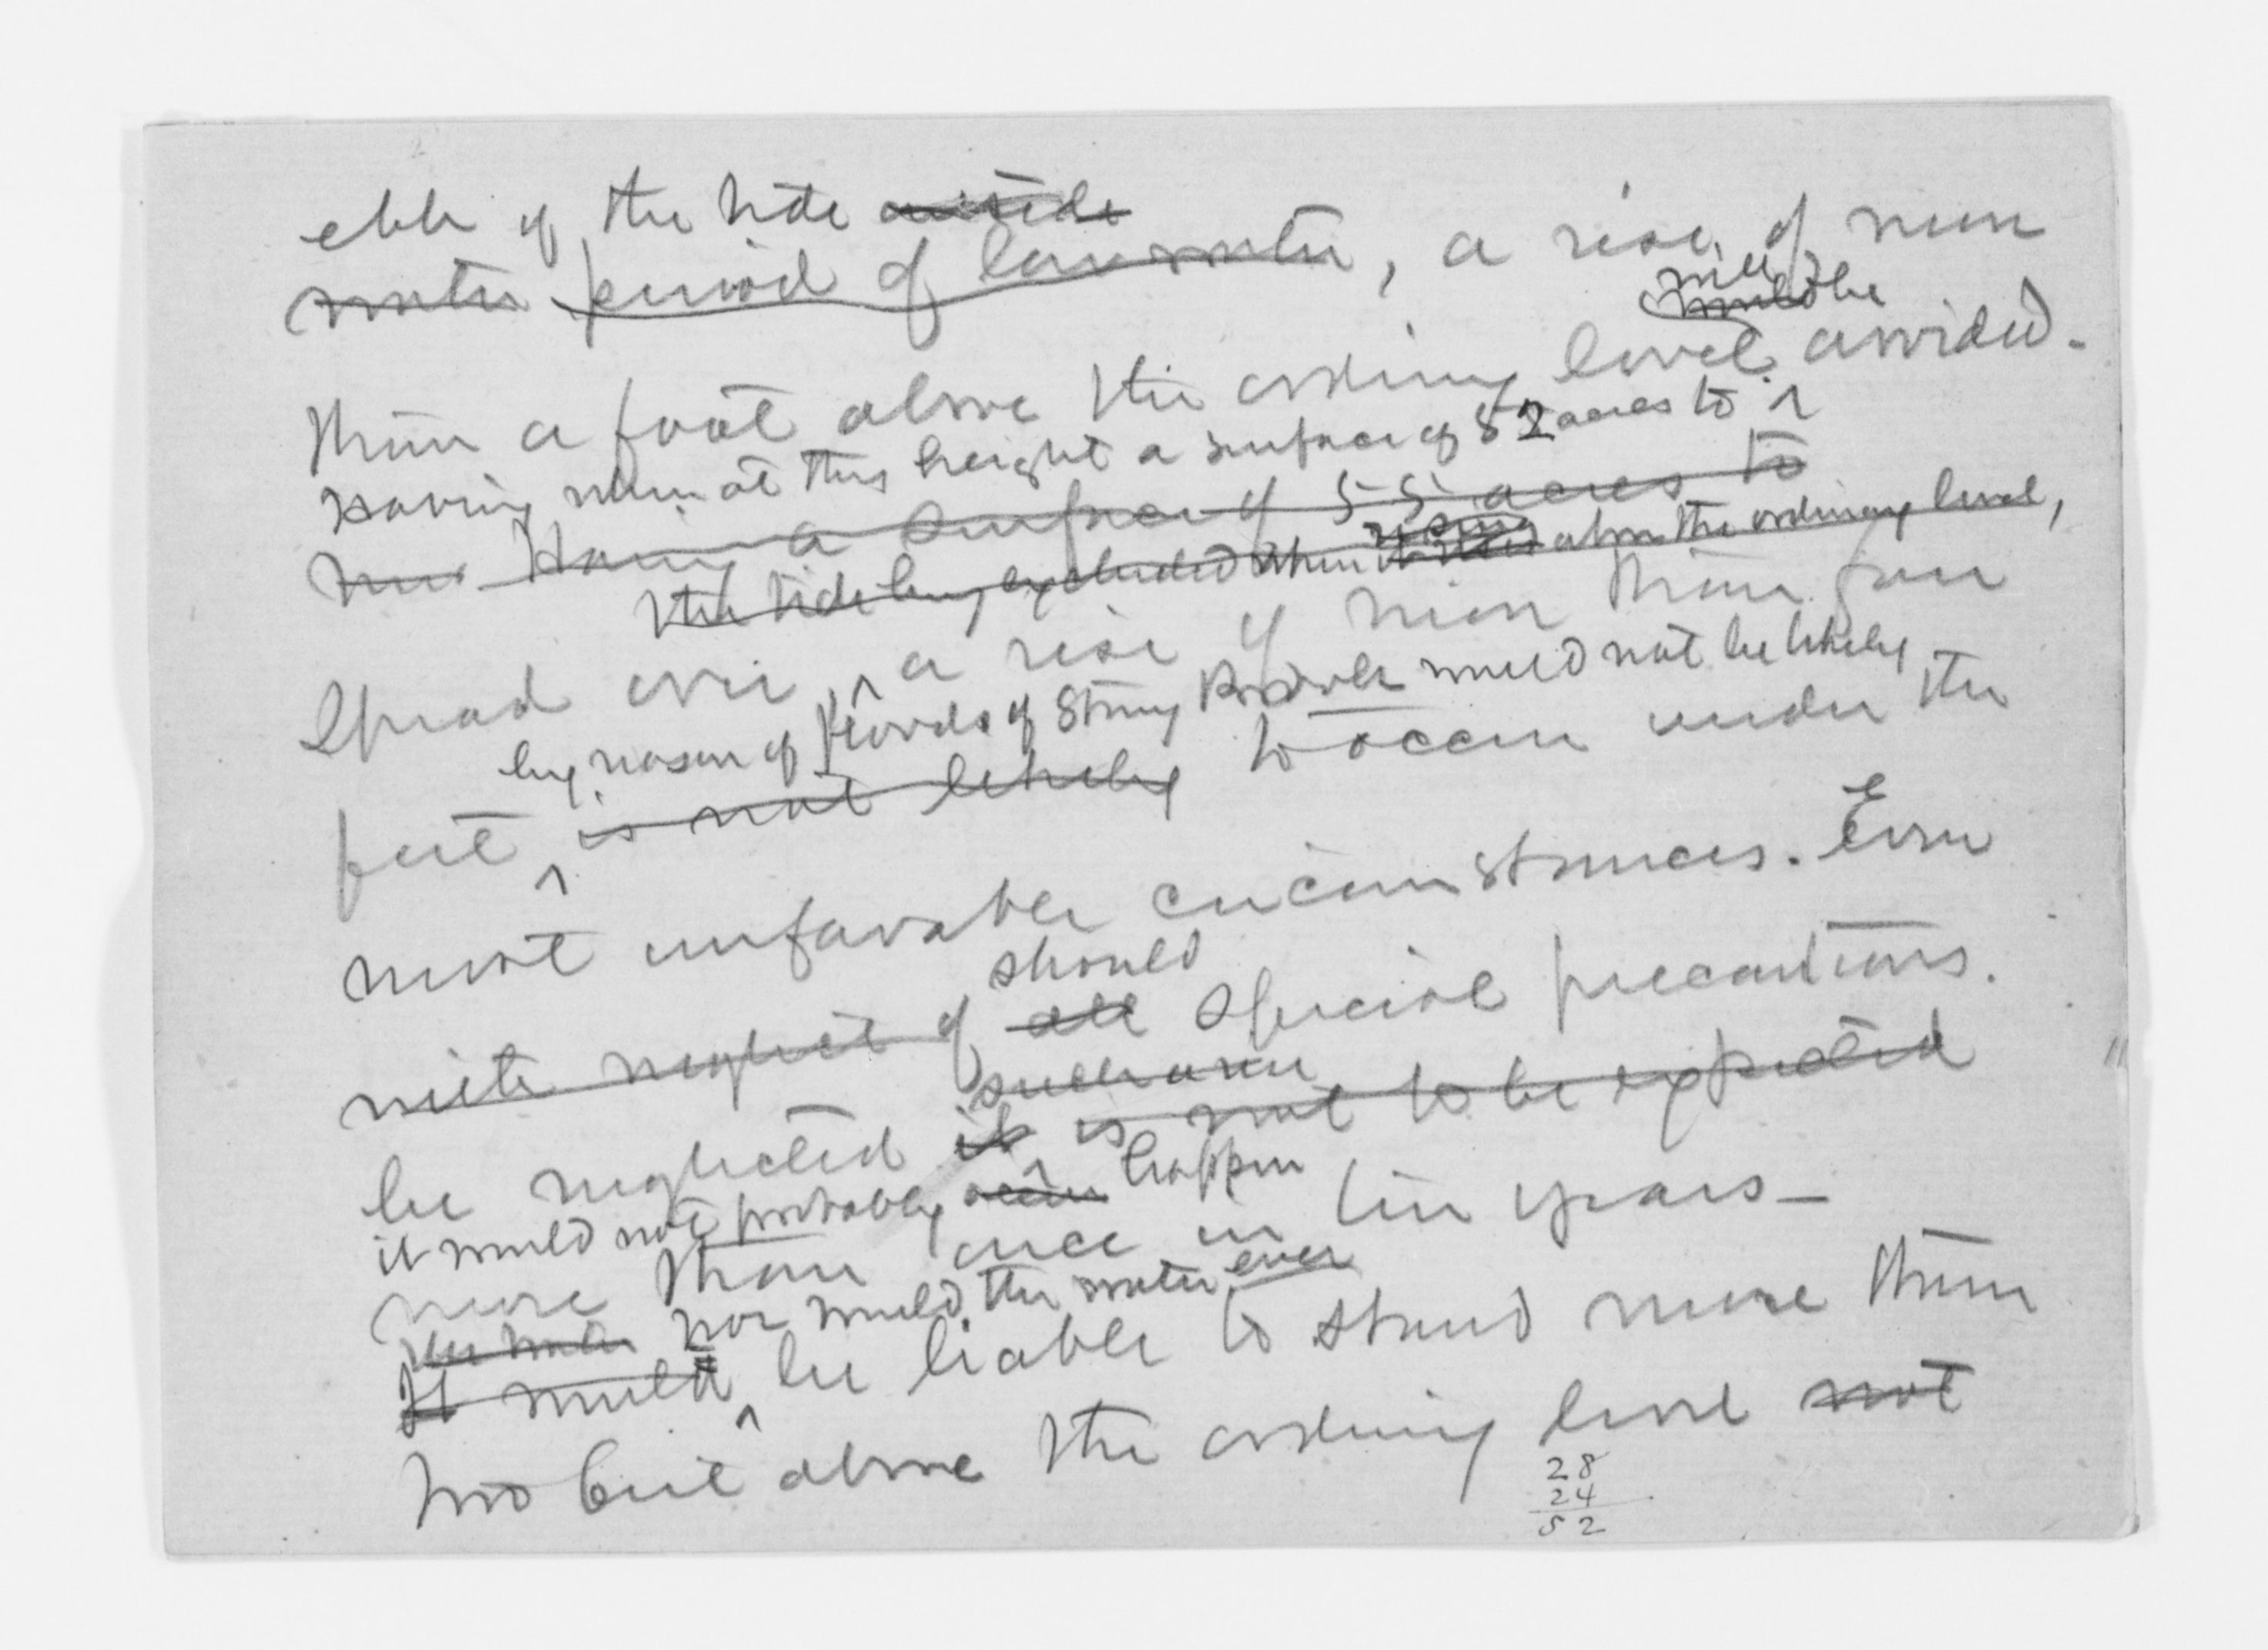 ebb of the tide outside
water period of low water, a rise of more
will
would be
than a foot above the ordinary level avoided.
Having when at this height a surface of 52 acres to
Having a surface of 55 acres to
the tide being excluded when rising above the ordinary level,
spread over, a rise of more than four
by reason of floods of Stony Brook would not be likely
feet is not likely to occur under the
most unfavorable circumstances. Even
should
with neglect of all special precautions.
such a rise
be neglected it is not to be expected
it would not probably occur happen
more than once in ten years—
the water nor would the water ever
It would be liable to stand more than
two feet above the ordinary level not
28
24
52